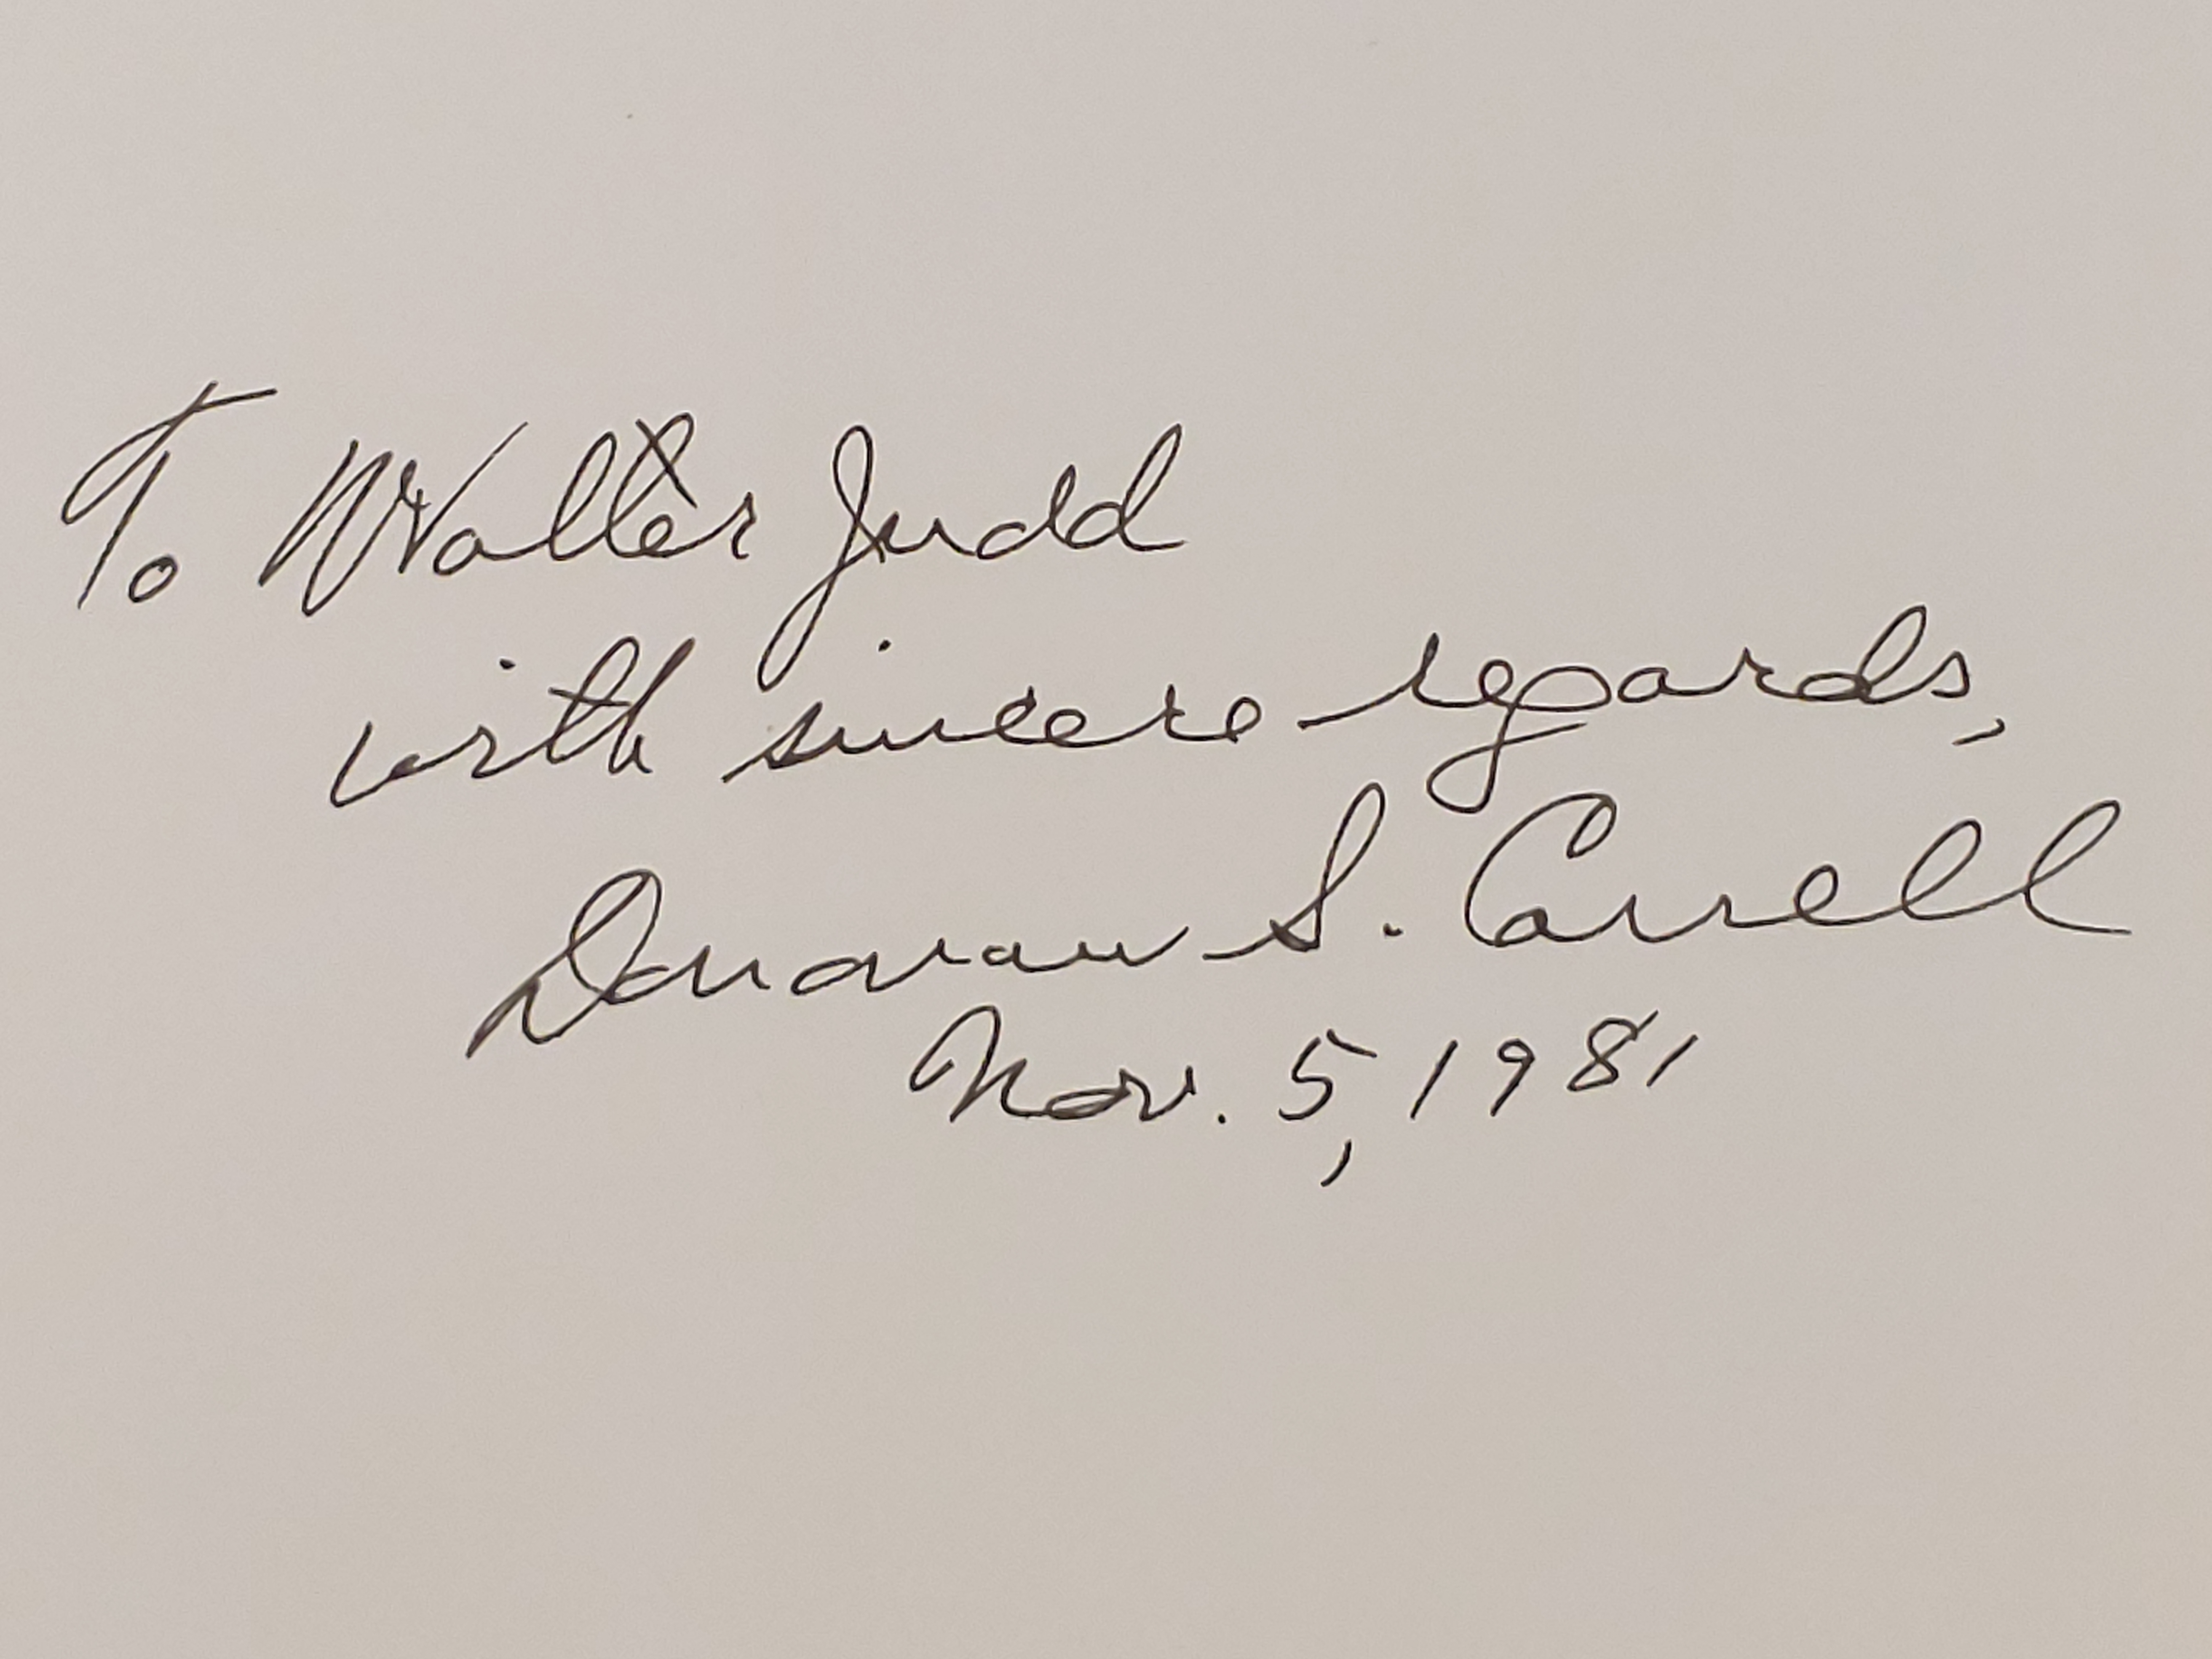 To Walter Judd
with sincere regards,
Donovan S. Correll
Nov. 5, 1981